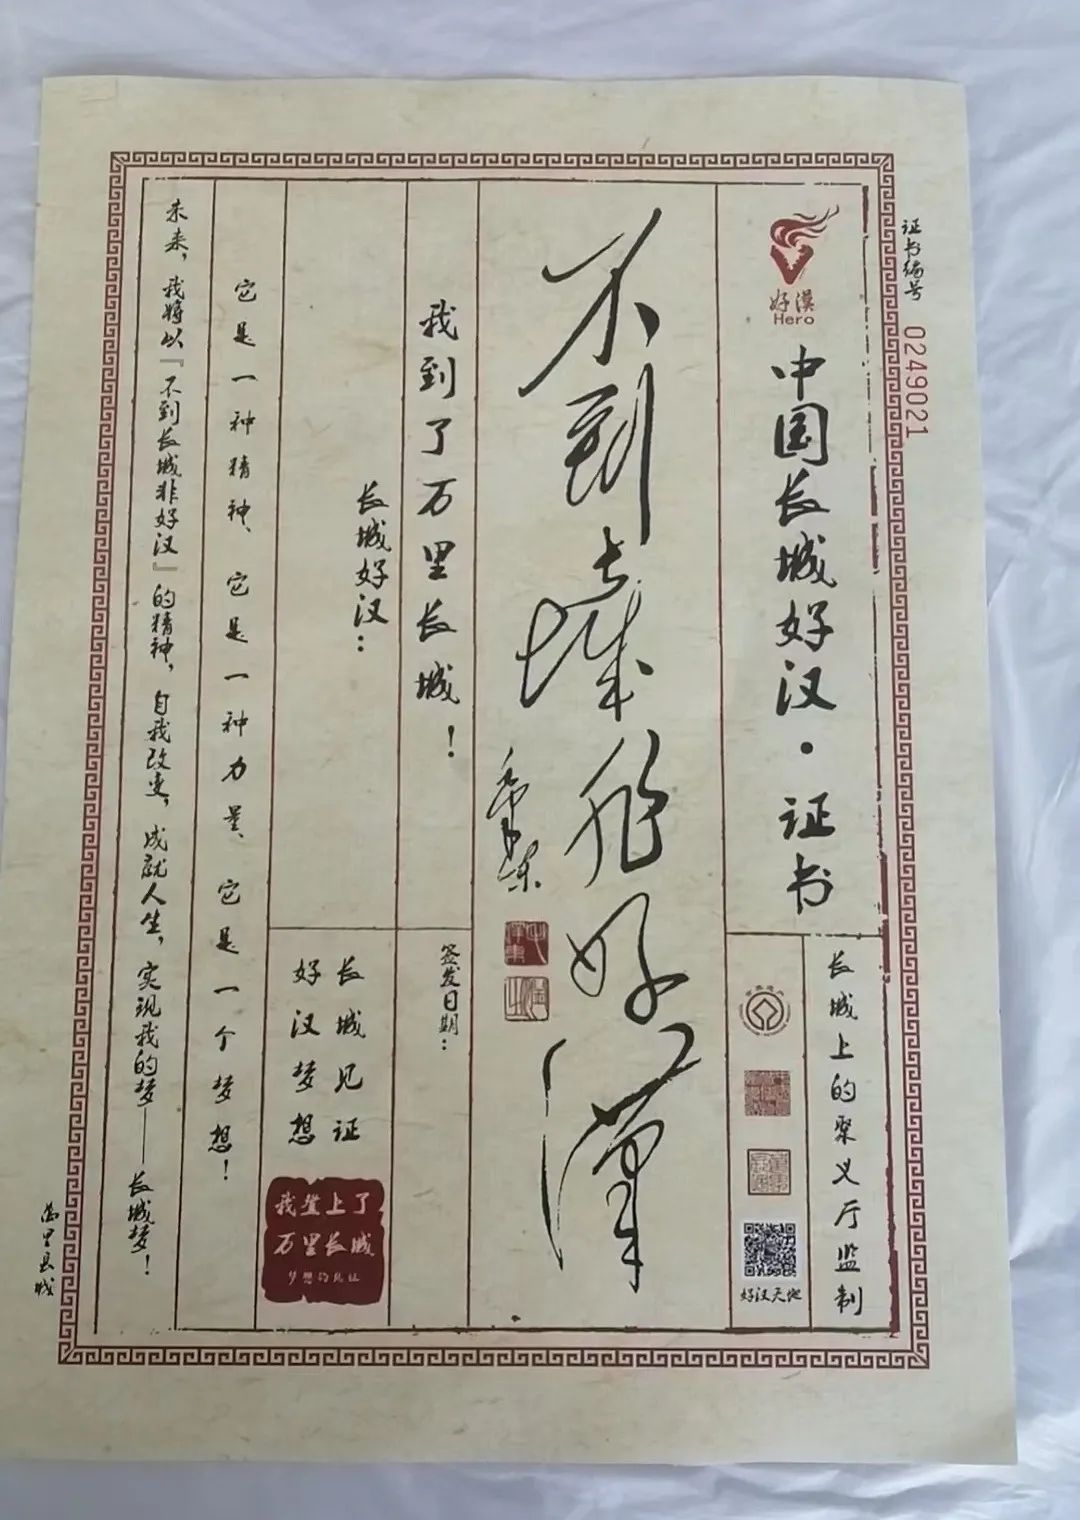 证书编号 0249021
好漢
Hero
中国长城好汉·证书
长城上的聚义厅监制
好汉天地
不到长城非好漢
签发日期：
我到了万里长城！
长城好汉：
长城见证
好汉梦想
我登上了
万里长城
梦想的见证
它是一种精神、它是一种力量、它是一个梦想！
未来，我将以『不到长城非好汉』的精神，自我改变，成就人生，实现我的梦——长城梦！